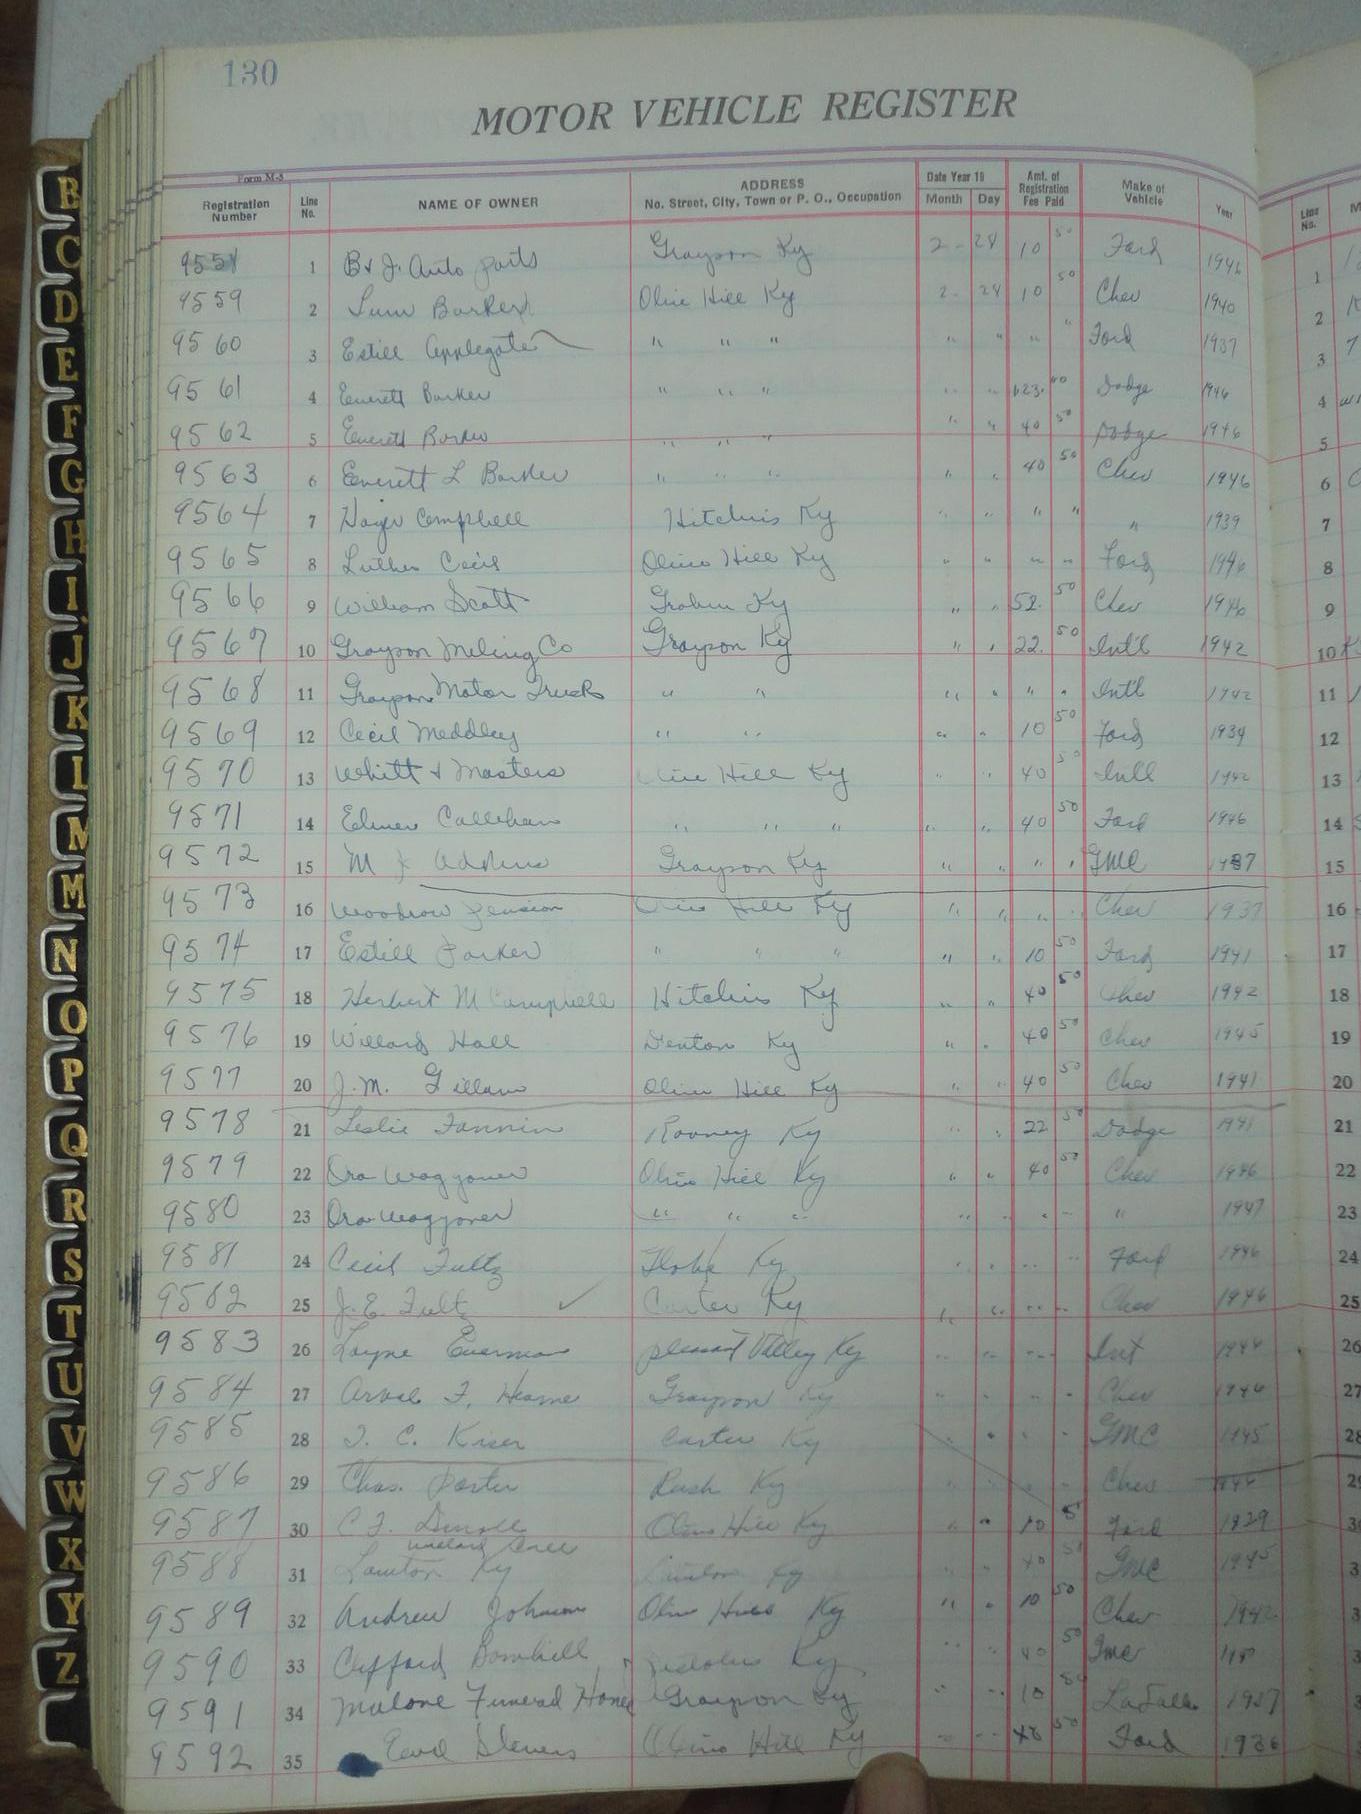 130
MOTOR VEHICLE REGISTER
Form M-3
Registration Number Line No. NAME OF OWNER ADDRESS No. Street, City, Town or P. O., Occupation Date Year 19 Month Day Amt. of Registration Fee Paid Make of Vehicle Year
1 B & J. Auto parts Grayson Ky 2-28 10 50 Ford 1946
9559 2 Olive Hill Ky 2-28 10 50 Chev 1940
9560 3 Estill Applegate " " " " " " " Ford 1937
9561 4 Everett Barker " " " " " Dodge 1946
9562 5 Everett Barker " " " " " 40 50 Dodge 1946
9563 6 Everett L Barker " " " " " 40 50 Chev 1946
9564 7 Campbell Hitchins Ky " " " " " 1939
9565 8 Luther Cecil Olive Hill Ky " " " " Ford 1946
9566 9 William Scott Ky " " 52. 50 Chev 1946
9567 10 Grayson Co Grayson Ky " " 22. 50 Int'l 1942
9568 11 Grayson Motor Trucks " " " " " " Intl 1942
9569 12 Cecil Meddley " " " " 10 50 Ford 1934
9570 13 Whitt & Masters Olive Hill Ky " " 40 50 Intl 1942
9571 14 Elmer Callihan " " " " " 40 50 Ford 1946
9572 15 Grayson Ky " " " " GMC 1937
9573 16 Woodrow Olive Hill Ky " " " " Chev 1937
9574 17 Estill Parker " " " " " 10 50 Ford 1941
9575 18 Herbert M Campbell Hitchins Ky " " 40 50 Chev 1942
9576 19 Willard Hall Denton Ky " " 40 50 Chev 1945
9577 20 J.M. Gillam Olive Hill Ky " " 40 50 Chev 1941
9578 21 Leslie Fannin Rooney Ky " " 22 50 Dodge 1941
9579 22 Ora Waggoner Olive Hill Ky " " 40 50 Chev 1946
9580 23 Ora Waggoner " " " " " " " " 1947
9581 24 Cecil Fultz Ky " " " " Ford 1946
9582 25 J.E. Fultz Carter Ky " " " " Chev 1946
9583 26 Layne Everman pleasant Valley Ky " " " " Int
9584 27 Grayson Ky " " " " Chev 1946
9585 28 T. C. Kiser Carter Ky " " " " GMC 1945
9586 29 Chas. Porter Rush Ky " " " " Chev
9587 30 Olive Hill Ky " " 10 5 Ford 1929
9588 31 Lawton Ky Ky " " 40 50 GMC 1945
9589 32 Andrew Johnson Olive Hill Ky " " 10 50 Chev 1942
9590 33 Clifford Ky " " 40 50 Gmc
9591 34 Malone Funeral Home Grayson Ky " " 10 50 LaSalle 1937
9592 35 Stevens Olive Hill Ky " " 50 Ford 1936
B
C
D
E
F
G
H
I
J
K
L
M
M
N
O
P
Q
R
S
T
U
V
W
X
Y
Z